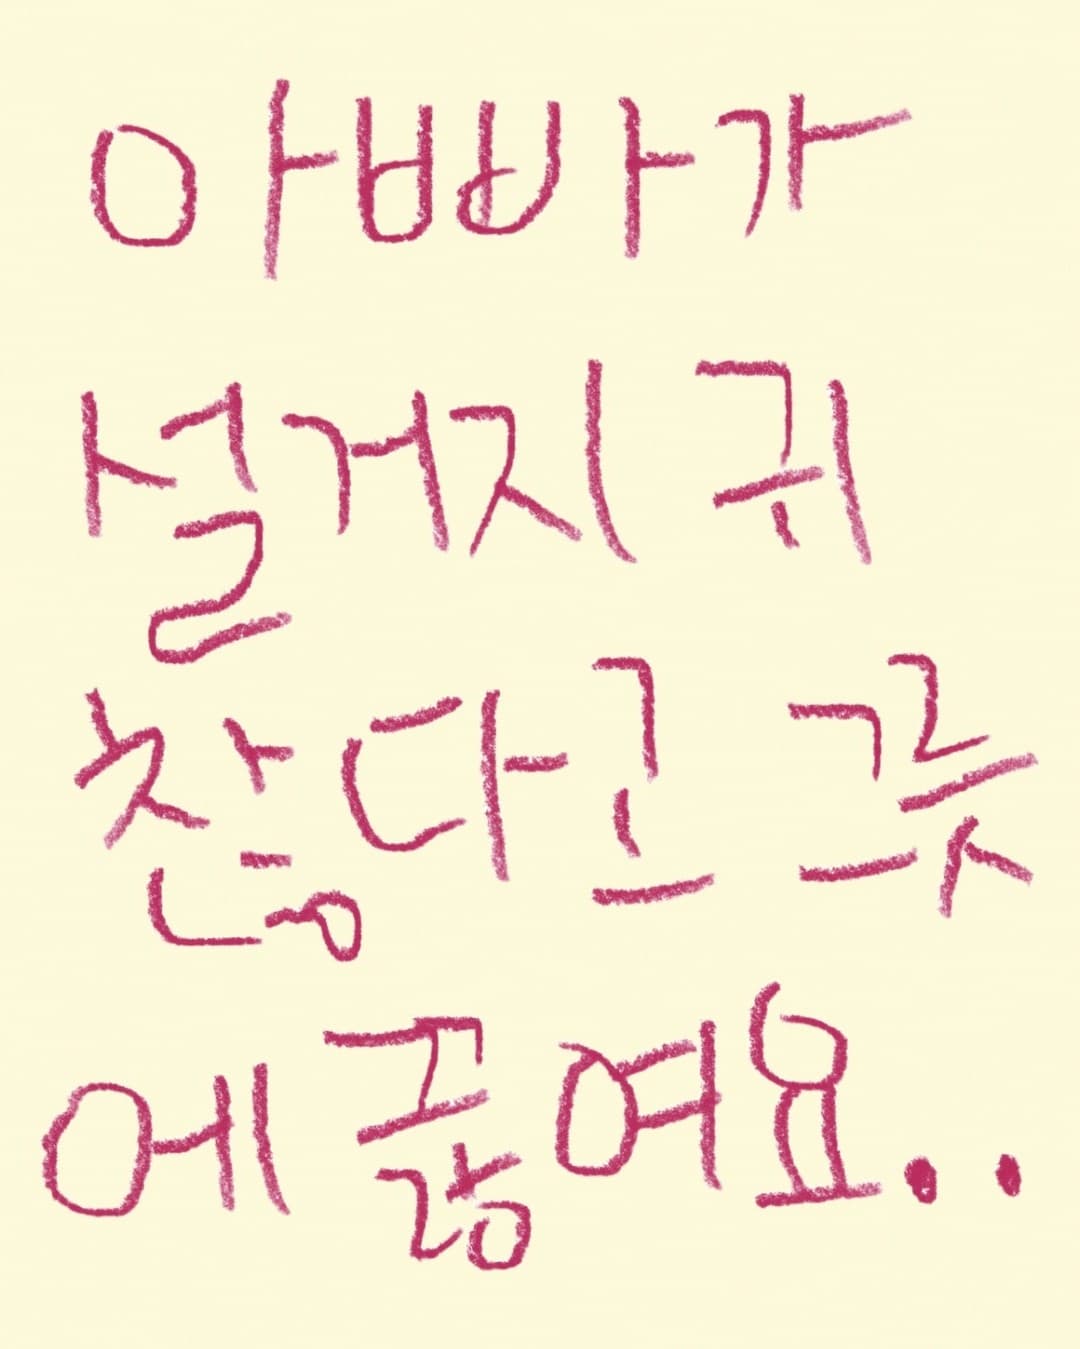 아빠가
설거지 귀
찮다고 그릇
에 끓여요..